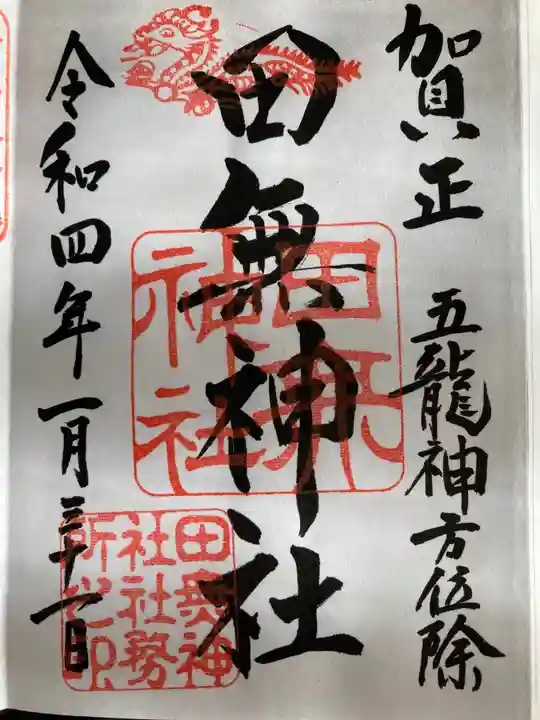 賀正
五龍神方位除
田無神社
令和四年一月三十一日
田無
神社
田無神
社社務
所之印